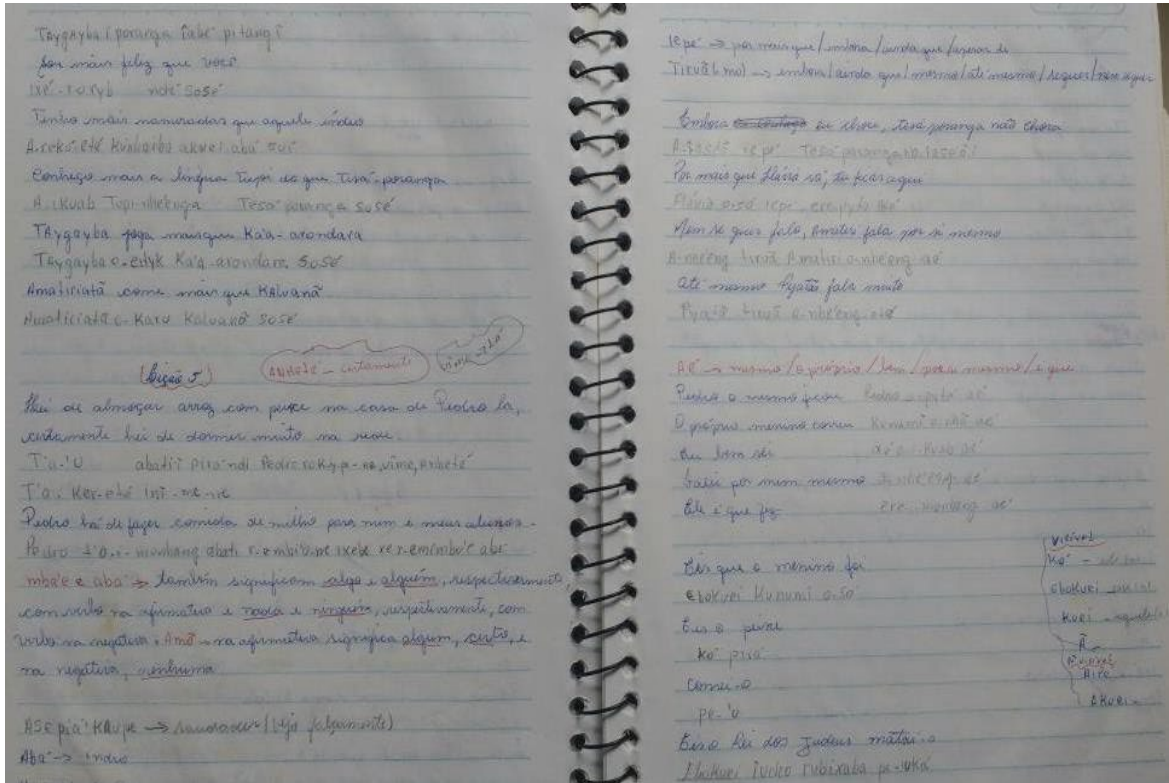 Taygayba i poranga îabé pitangĩ
Sou mais feliz que você
ixé .roryb ndé sosé
Tenho mais namoradas que aquele índio
A.rekó.eté Kunhaíba akuei abá suí
Conheço mais a língua Tupi do que Tesá-poranga
A.ikuab Tupi-nhe'enga Tesá poranga sosé
TAygayba joga mais que Ka'a-arondara
Taygayba Ka'a-arondara sosé
Amatiriatã come mais que KAluanã
Amatiriatã o.Karu Kaluanã sosé
(Lição 5)
ANHETÉ - certamente
Vime - Lá
Hei de almoçar arroz com peixe na casa de Pedro lá,
certamente hei de dormir muito na rede.
T'a.'u abati'i pirá ndi Pedro rokype-ne, vime, anheté
T'a.Ker-eté inĩ-me-ne
Pedro há de fazer comida de milho para mim e meus alunos.
Pedro t'o.i-monhang abati r-embi'u ixebe
mba'e e abá → também significam algo e alguém, respectivamente,
com verbo na afirmativa e nada e ninguém, respectivamente, com
verbo na negativa. Amõ - na afirmativa significa algum, certo, e
na negativa, nenhuma
ASEpiá' KAupe → (Vejo folgamente)
Abá → índio
iepé → por mais que/embora/ainda que/apesar de
Tiruã (mo) → embora/ainda que/mesmo/até mesmo/sequer/nem sequer
Embora eu chore, Tesá poranga não chora
A-îase'o iepé Tesá poranga
Por mais que Flávia vá, tu ficas aqui
Flávia o.só iepé ere.pytá iké
Nem sequer falo, Amatiri fala por si mesmo
A-nhe'eng tiruã Amatiri o-nhe'eng aé
Até mesmo Pyatã fala muito
Pyatã tiruã o-nhe'eng-eté
AÉ → mesmo/o próprio/bem/por si mesmo/é que
Pedro o mesmo ficou Pedro o-pytá aé
O próprio menino correu Kunumĩ aé
Eu bem sei ixé a-i-kuab aé
Falei por mim mesmo A-nhe'eng aé
Ele é que fez monhang aé
Eis que o menino foi
Ebokuei Kunumĩ o.só
Eis o peixe
Ko pirá
Comei-o
pe-'u
Eis o Rei dos Judeus matai-o
Ebokuei rubixaba pe-îuká
Visível
Ko -
Ebokuei
Kuei - aquele
Ã
Akuei -